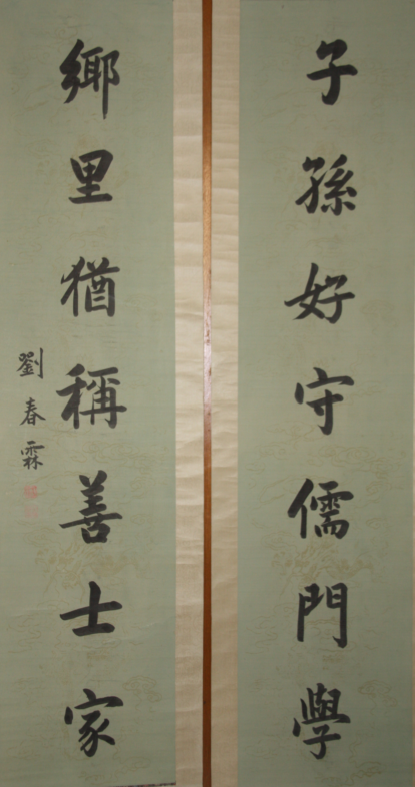 子孫好守儒門學
鄉里猶稱善士家
劉春霖